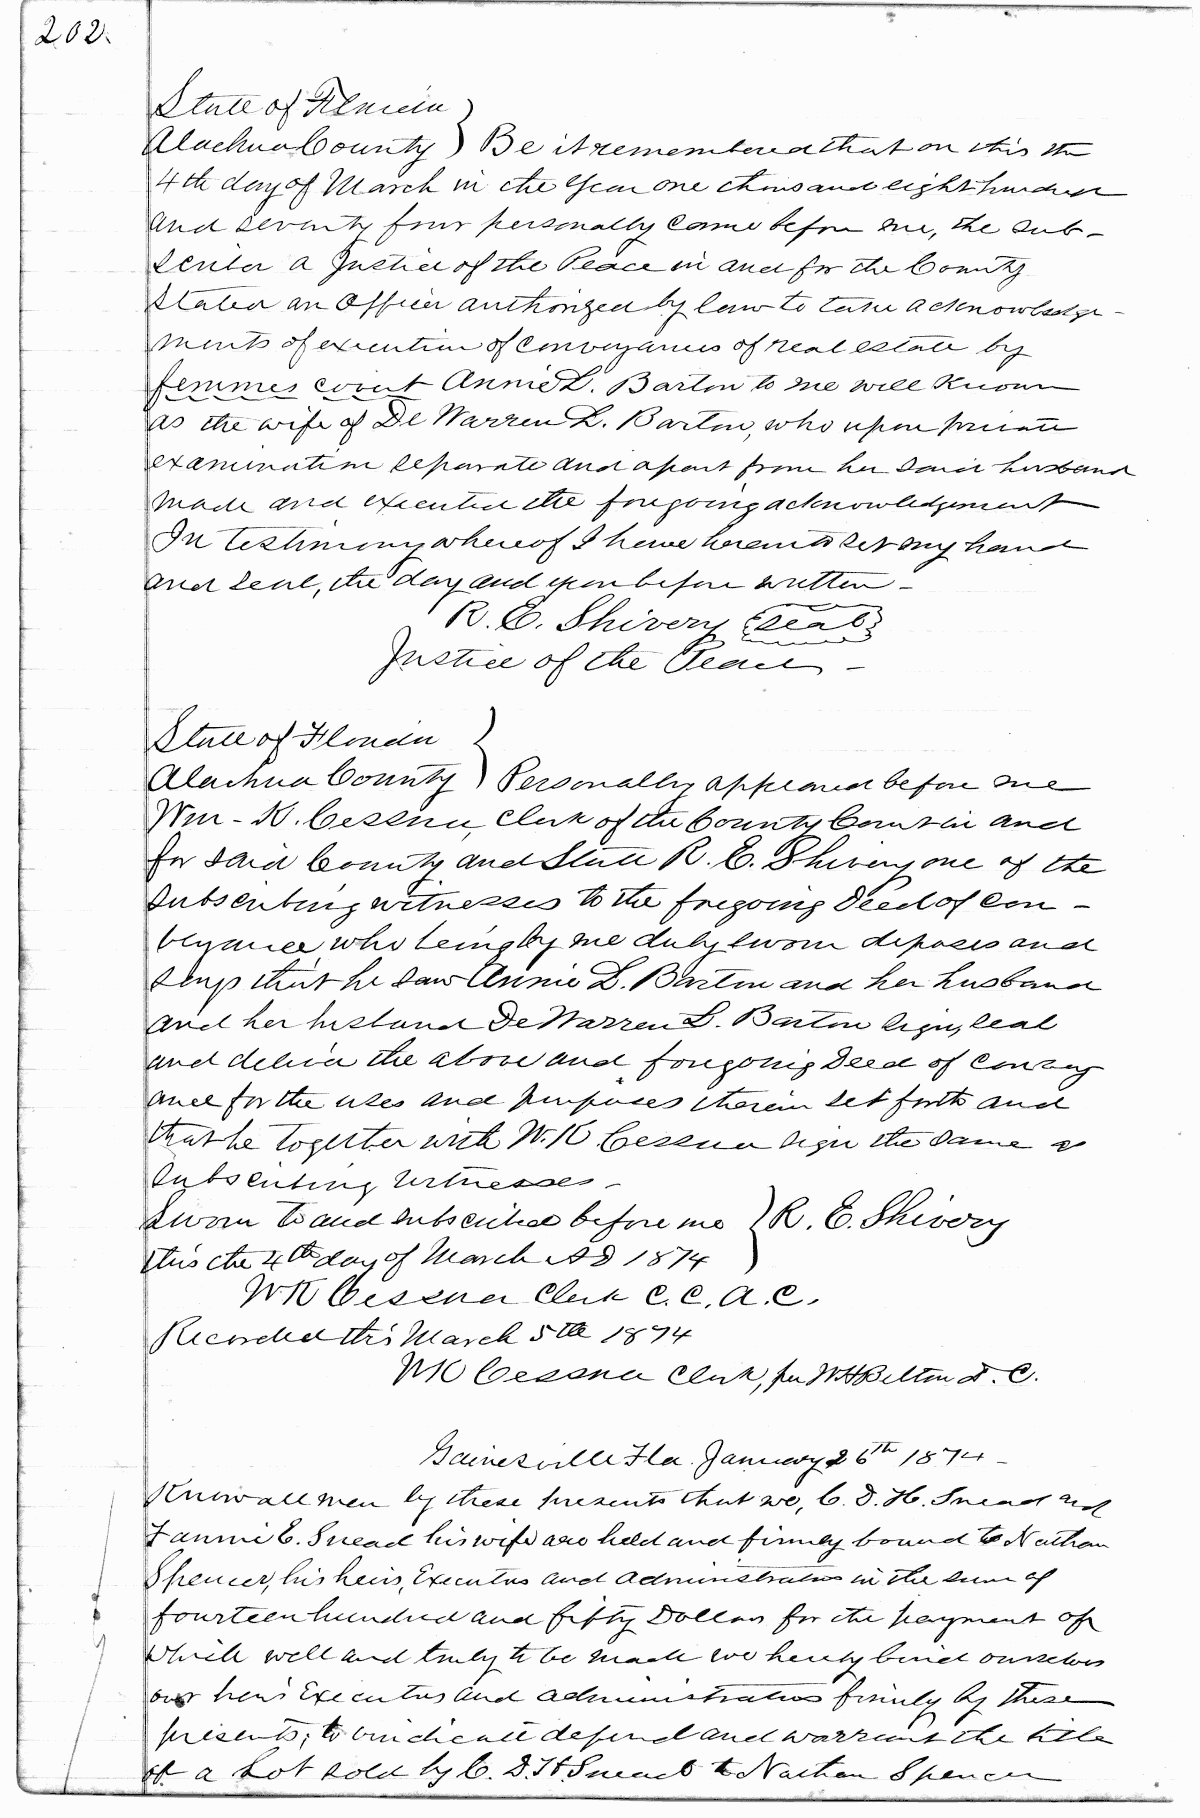 202.
State of Florida
Alachua County } Be it remembered that on this the
4th day of March in the year one thousand eight hundred
and seventy four personally came before me, the sub-
scriber a Justice of the Peace in and for the County
stated an Officer authorized by law to take acknowledge-
ments of execution of conveyances of real estate by
femmes covert Annie L. Barton to me well known
as the wife of De Warren L. Barton, who upon private
examination separate and apart from her said husband
made and executed the foregoing acknowledgement
In testimony whereof I have hereunto set my hand
and seal, the day and year before written -
R. E. Shivery (seal)
Justice of the Peace -
State of Florida
Alachua County } Personally appeared before me
Wm - K. Cessna, Clerk of the County Court in and
for said County and State R. E. Shivery one of the
subscribing witnesses to the foregoing Deed of con-
veyance, who being by me duly sworn deposes and
says that he saw Annie L. Barton and her husband
and her husband De Warren L. Barton sign, seal
and deliver the above and foregoing Deed of convey
ance for the uses and purposes therein set forth and
that he together with W. K Cessna sign the same as
subscribing witnesses -
Sworn to and subscribed before me } R. E. Shivery
this the 4th day of March A D 1874
W K Cessna Clerk C. C. A. C.
Recorded this March 5th 1874
W K Cessna Clerk, per W H Belton D. C.
Gainesville Fla. January 26th 1874 -
Know all men by these presents that we, C. D. H. Snead and
Fannie E. Snead his wife are held and firmly bound to Nathan
Spencer, his heirs, Executors and administrators in the sum of
fourteen hundred and fifty Dollars for the payment of
which well and truly to be made we hereby bind ourselves
our heirs Executors and administrators firmly by these
presents; to vindicate defend and warrant the title
of a Lot sold by C. D. H. Snead to Nathan Spencer